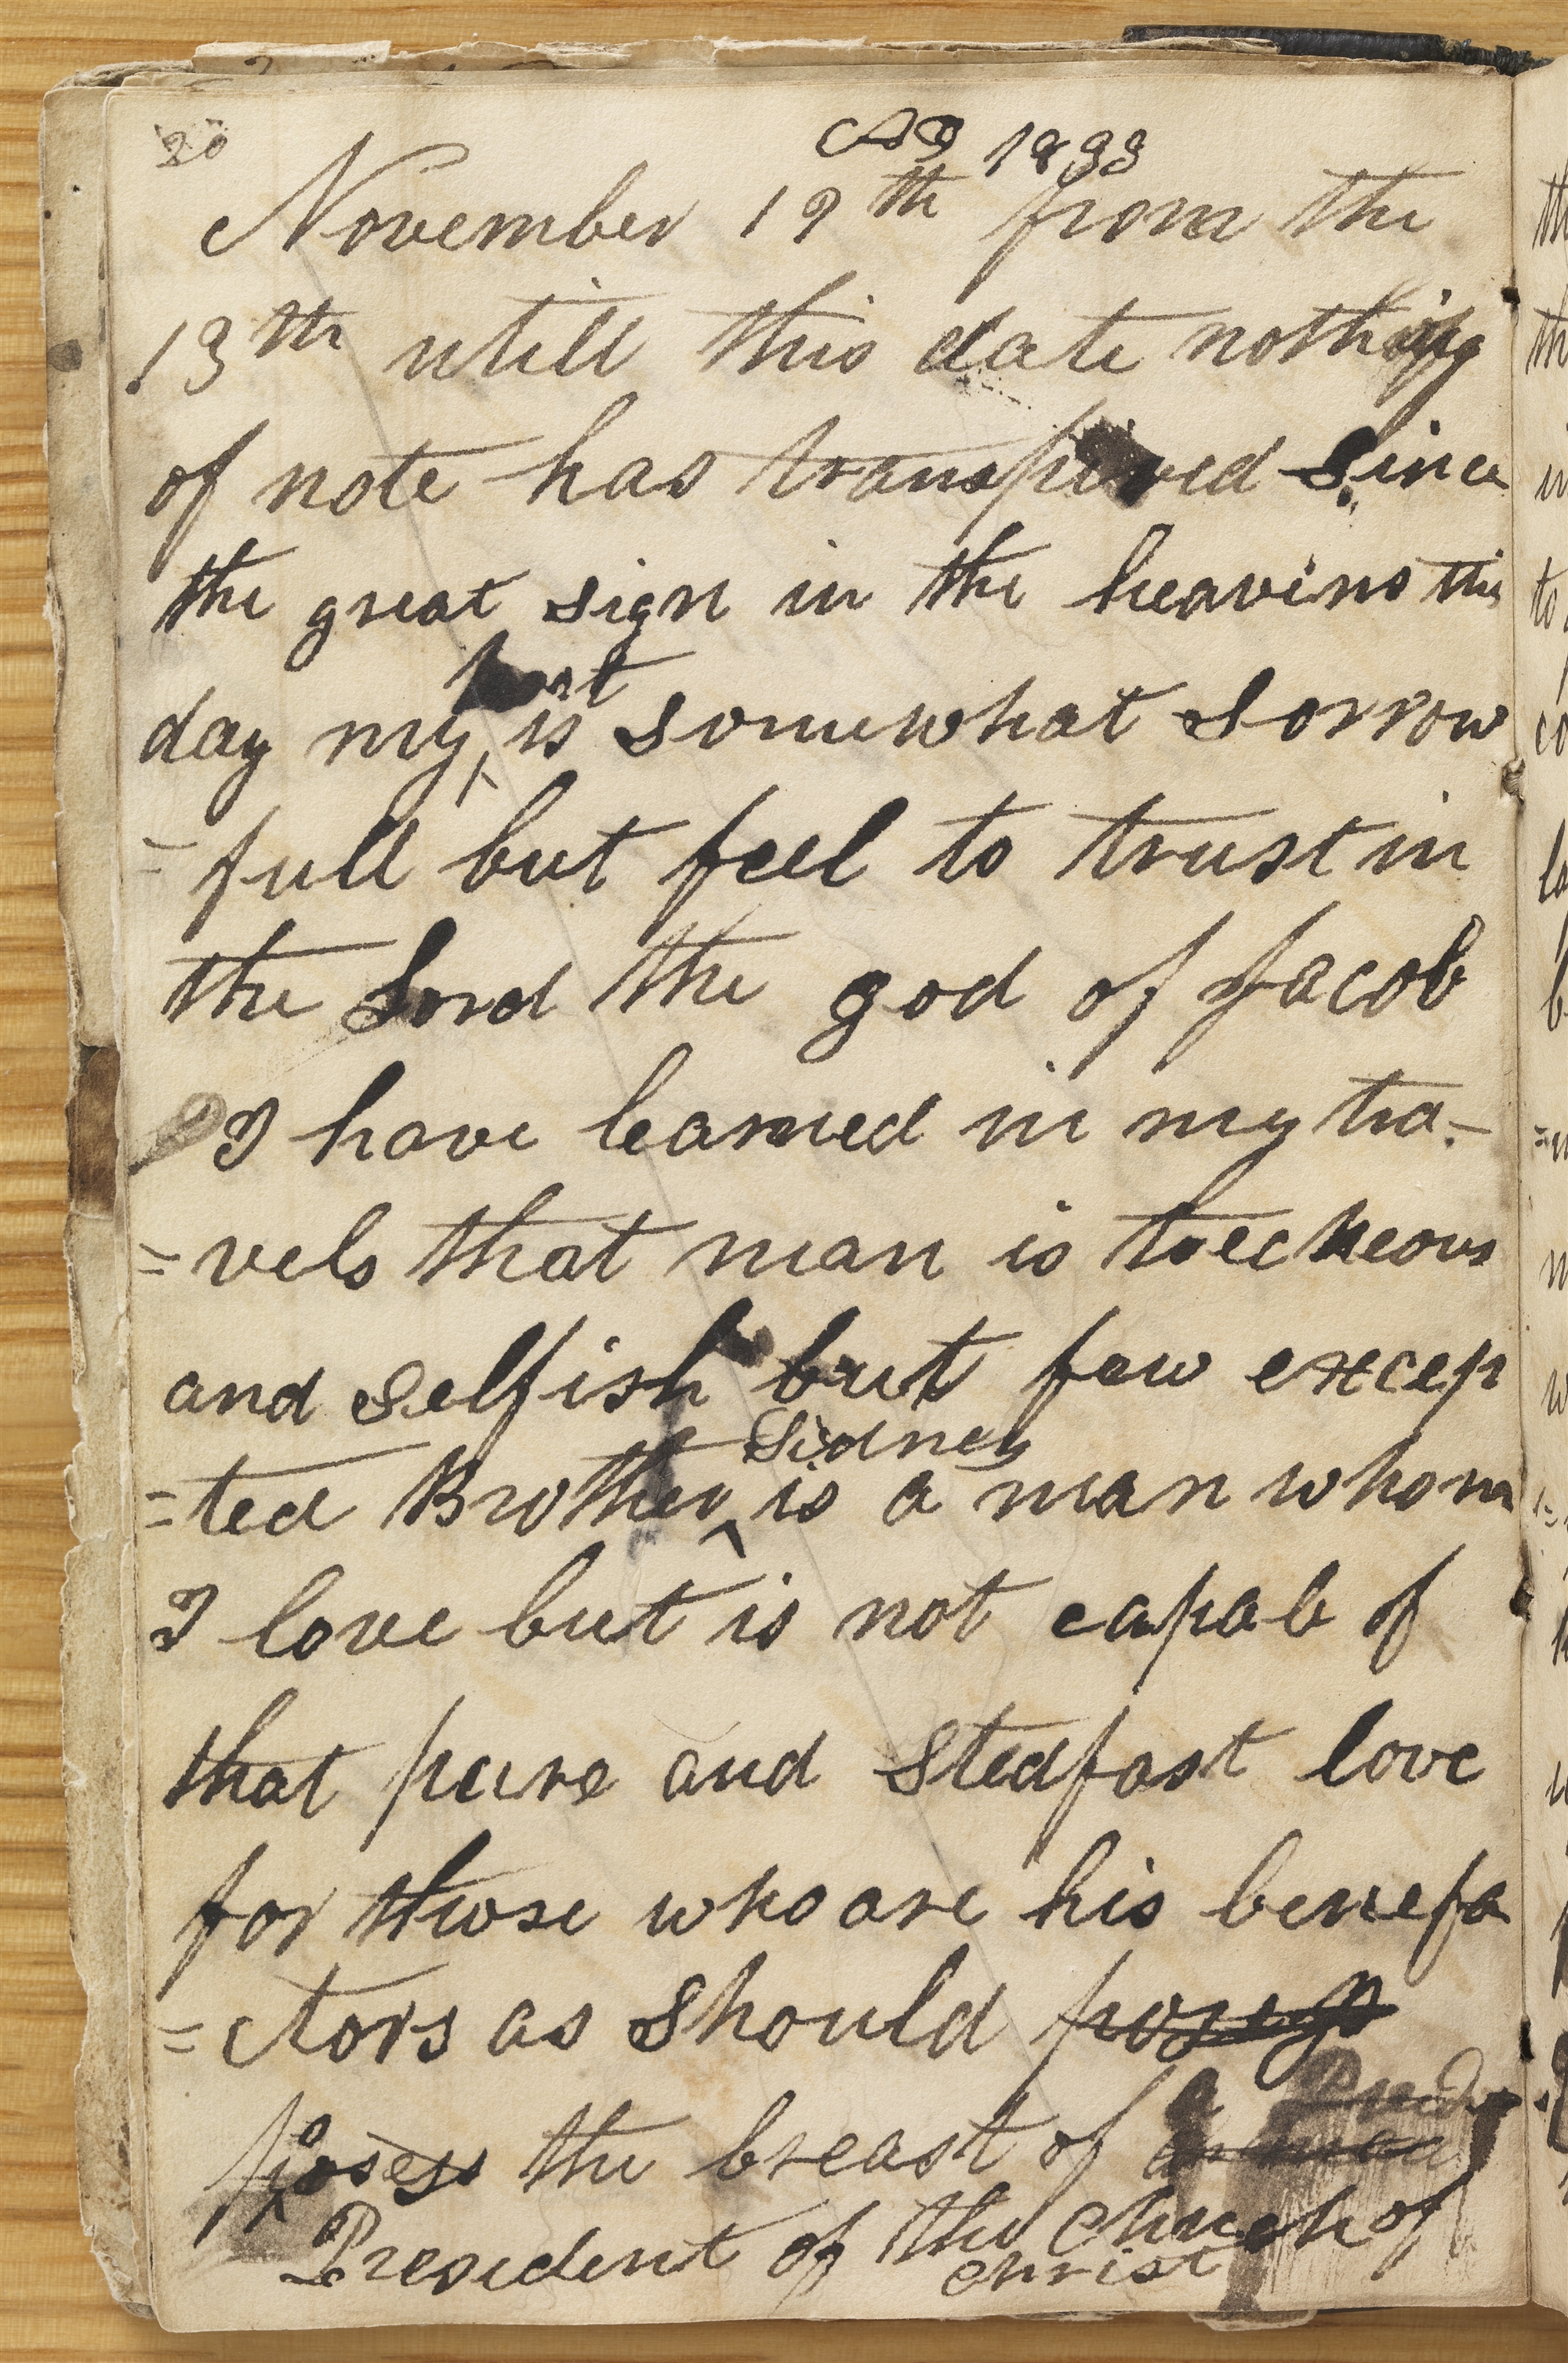 20
AD 1833
November 19th from the
13th utill this date nothing
of note has transpired since
the great sign in the heavins this
hart
day my is somewhat sorrow
=full but feel to trust in
the Lord the god of Jacob
I have learned in my tra=
=vels that man is treecheous
and selfish but few excep
Sidney
=ted Brother ^ is a man whom
I love but is not capab of
that pure and stedfast love
for those who are his benefa
=ctors as should posess
a
posess the breast of a man
President of the Chuch of
christ